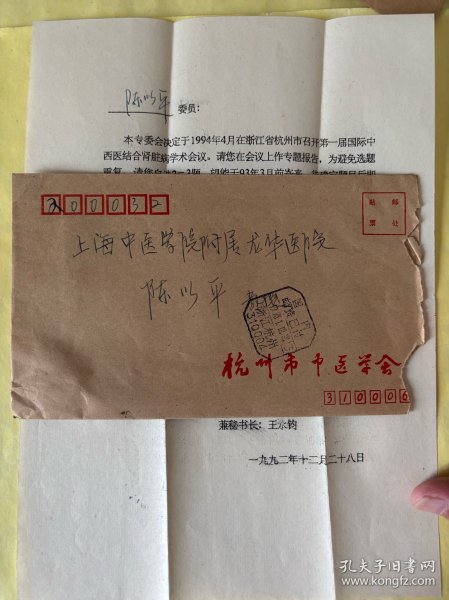 陈以平 委员:
本专委会决定于1994年4月在浙江省杭州市召开第一届国际中
西医结合肾脏病学术会议,请您在会议上作专题报告,为避免选题
200032
贴邮
票处
上海中医学院附属龙华医院
陈以平
310004
杭州市中医学会
310006
兼秘书长:王永钧
一九九二年十二月二十八日
孔夫子旧书网
www.kongfz.com